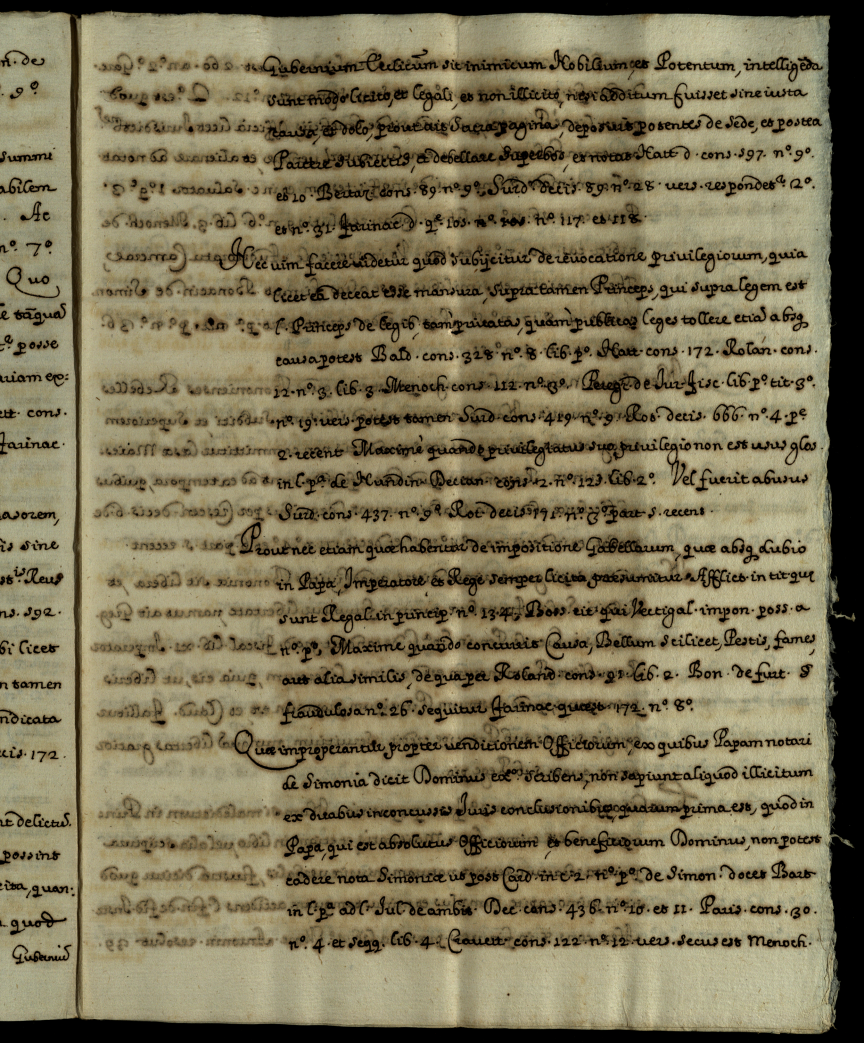 n. de
9º
summi
abilem
Ac
nº. 7º
Quo
posse
cons.
Farinac.
sine
ns. 592.
bi licet
n tamen
ndicata
cis. 172.
possint
quod
Gubernium sit inimicum Nobilium, et Potentum, intelligẽda
sunt modo licito, et legali, et non illicito, nisi additum fuisset sine iusta
causa, et dolo, prout ait Sacra pagina, deposuit potentes de sede, et postea
et debellare superbos, et notat Natt. d. cons. 597. nº. 9º.
et 10. cons. 89 nº. 9º. Surd. decis. 89. nº. 28. vers. respondetr. 2º.
et nº. 31. Farinac. d. qº. 105. nº. 117. et 118.
Nec vim facere videtur quod subijcitur de revocatione privilegiorum, quia
licet ea deceat esse mansura, supra tamen Princeps, qui supra legem est
l. Princeps de legib. tam privatas, quam publicas leges tollere etiã absq
causa potest Bald. cons. 328 nº. 8. lib. pº. Natt. cons. 172. Rolan. cons.
12. nº. 3. lib. 3. Menoch. cons. 112. Peregr. de Iur. Fisc. lib. pº. tit. 3º.
nº. 19. vers. potest tamen Surd. cons. 419. nº. 9. Rot. decis. 666. nº. 4. pe.
2. recent. Maxime quando privilegiatus suo privilegio non est usus glos.
in l. pª. de Nundin. cons. 2. nº. 123. lib. 2º. Vel fuerit abusus
Surd. cons. 437. nº. 9º. Rot. decis. 171. part. 5. recent.
Prout nec etiam quæ habentur de impositione Gabellarum, quæ absq dubio
in Papa, Imperatore et Rege semper licita præsumitur Afflict. in tit. quę
sunt Regal. in princip. nº. 134. Boss. tit. qui Vectigal. impon. poss. a
nº. pº. Maxime quando concurrit Causa, Bellum scilicet, Pestis, fames,
aut alia similis, de qua per Roland. cons. 91. lib. 2. Bon. de furt. §
fraudulosa nº. 26. sequitur Farinac. quæst. 172. nº. 8º.
Quæ improperantur propter venditionem Officiorum, ex quibus Papam notari
de Simonia dicit Dominus scribens, non sapiunt aliquod illicitum
ex duabus inconcussis Iuris conclusionibus, quarum prima est, quod in
Papa, qui est absolutus Officiorum et beneficiorum Dominus, non potest
cadere nota Simoniæ ut post Card. in c. 2. nº. pº. de Simon. docet Bart.
in l. pª. ad l. Iul. de ambit. Dec. cons. 436. nº. 10. et 11. Paris. cons. 30.
nº. 4. et seqq. lib. 4. Cravett. cons. 122. nº. 12. vers. secus est Menoch.